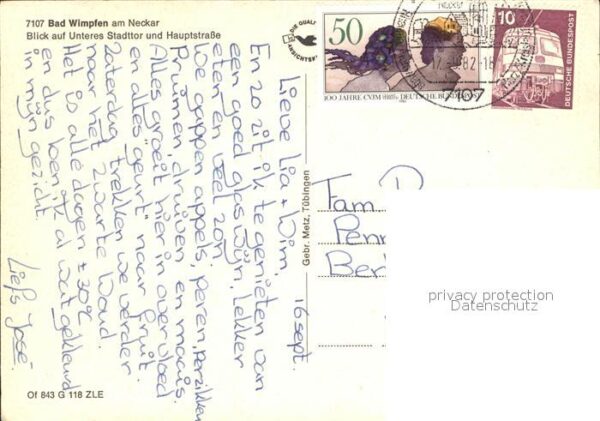 7107 Bad Wimpfen am Neckar
Blick auf Unteres Stadttor und Hauptstraße
16 sept.
Lieve Lia + Wim,
En zo zit ik te genieten van
een goed glas wijn, lekker
eten en veel zon.
We gappen appels, peren, perzikken
Pruimen, druiven en mais.
Alles groeit hier in overvloed
en alles "geurt" naar fruit.
Zaterdag trekken we verder
naar het Zwarte Woud.
Het is alle dagen ± 30°C
en dus ben ik al wat gekleurd
in mijn gezicht.
Liefs José.
Of 843 G 118 ZLE
Gebr. Metz, Tübingen
DIE QUALITÄTS
50
100 JAHRE CVJM DEUTSCHE BUNDESPOST
10
DEUTSCHE BUNDESPOST
7107
Fam
Penn
Ber
privacy protection
Datenschutz